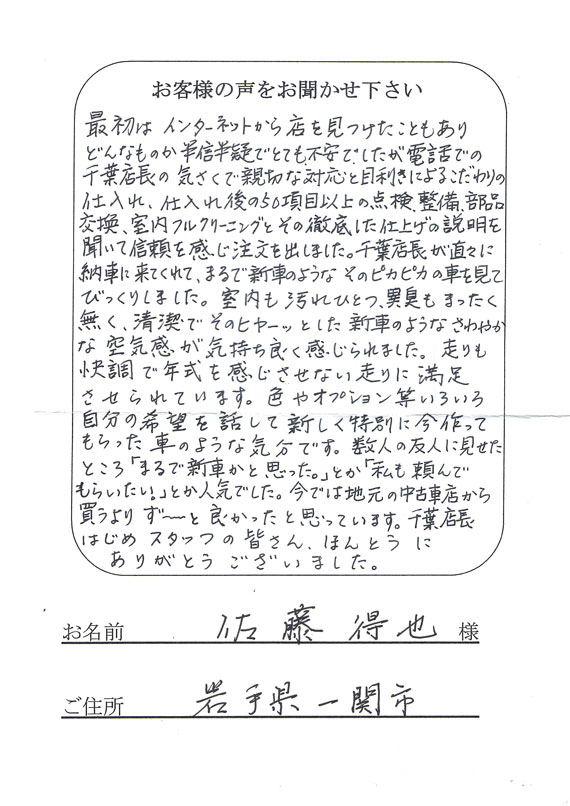 お客様の声をお聞かせ下さい
最初は インターネットから 店を見つけたこともあり
どんなものか半信半疑でとても不安でしたが電話での
千葉店長の 気さくで親切な対応と目利きによるこだわりの
仕入れ、仕入れ後の50項目以上の点検、整備、部品
交換、室内フルクリーニングとその徹底した仕上げの説明を
聞いて信頼を感じ注文を出しました。千葉店長が直々に
納車に来てくれて、まるで新車のような そのピカピカの車を見て
びっくりしました。 室内も 汚れひとつ、異臭も まったく
無く、清潔で そのヒヤーッとした 新車のような さわやか
な 空気感 が 気持ち良く感じられました。 走りも
快調 で 年式 を 感じ させない 走り に 満足
させられています。 色 や オプション 等 いろいろ
自分の 希望 を 話して 新しく 特別に 今 作って
もらった 車 の ような 気分 です。 数人の 友人に 見せた
ところ「まるで新車かと思った。」とか「私も 頼んで
もらいたい。」とか人気でした。今では地元の中古車店から
買うより ず〜〜と 良かったと思っています。千葉店長
はじめ スタッフ の 皆さん、ほんとう に
ありがとう ございました。
お名前 佐藤 得也 様
ご住所 岩手県一関市